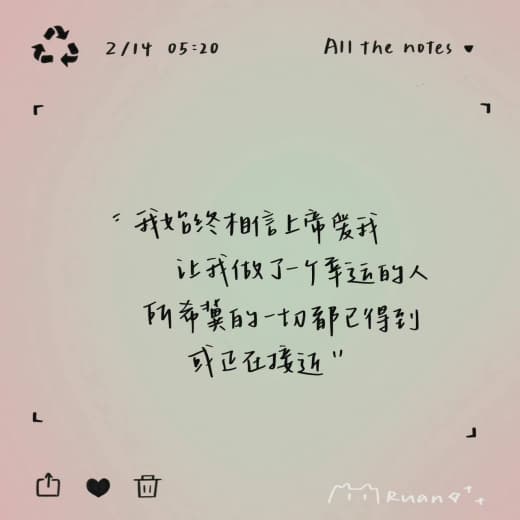 2/14 05:20
All the notes ♥
“我始终相信上帝爱我
让我做了一个幸运的人
所希冀的一切都已得到
或正在接近”
Ruan